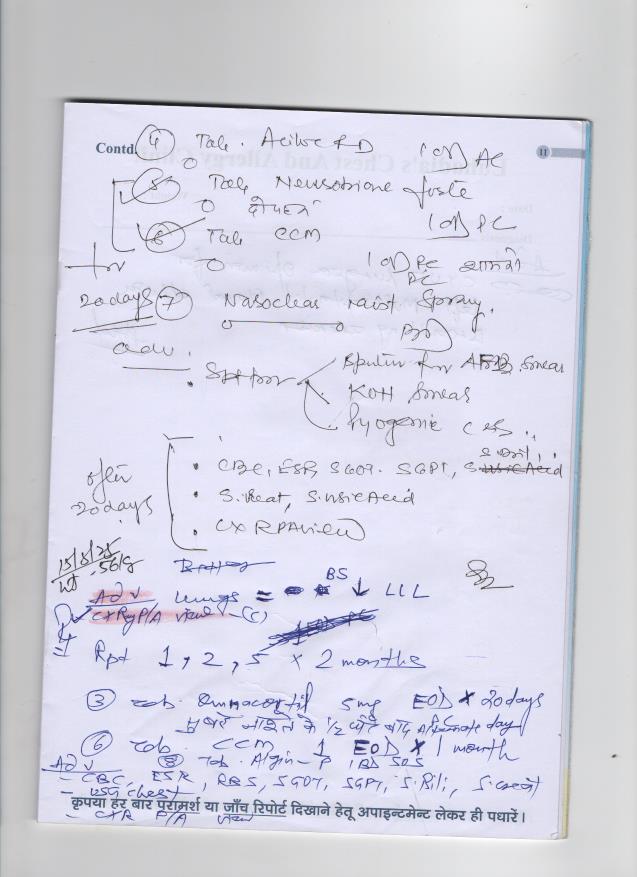 Contd.
11
④ Tab. Aciloc RD 1 OD AC
⑤ Tab Neurobione forte
1 OD PC
⑥ Tab CCM
1 OD PC
for
20 days ⑦ Nasoclear mist Spray.
BD
adv.
Sputum for AFB Smear
KOH Smear
Pyogenic C &S
after
20 days
• CBC, ESR, SGOT. SGPT, S. Bil
• S. Creat, S. uric Acid
• CXR PA view
15/5/25
Wt - 56
Adv Lungs = BS ↓ LLL
CXR P/A view - (C)
Rpt 1, 2, 5 x 2 months
③ Tab. Omnacortil 5mg EOD x 20 days
सुबह नाश्ते के 1/2 घंटे बाद Alternate day
⑥ Tab. CCM 1 EOD x 1 month
⑧ Tab. Algin-P 1 BD SOS
Adv
- CBC, ESR, RBS, SGOT, SGPT, S. Bili, S. creat
- USG chest
कृपया हर बार परामर्श या जाँच रिपोर्ट दिखाने हेतू अपाइन्टमेन्ट लेकर ही पधारें।
- CXR P/A view